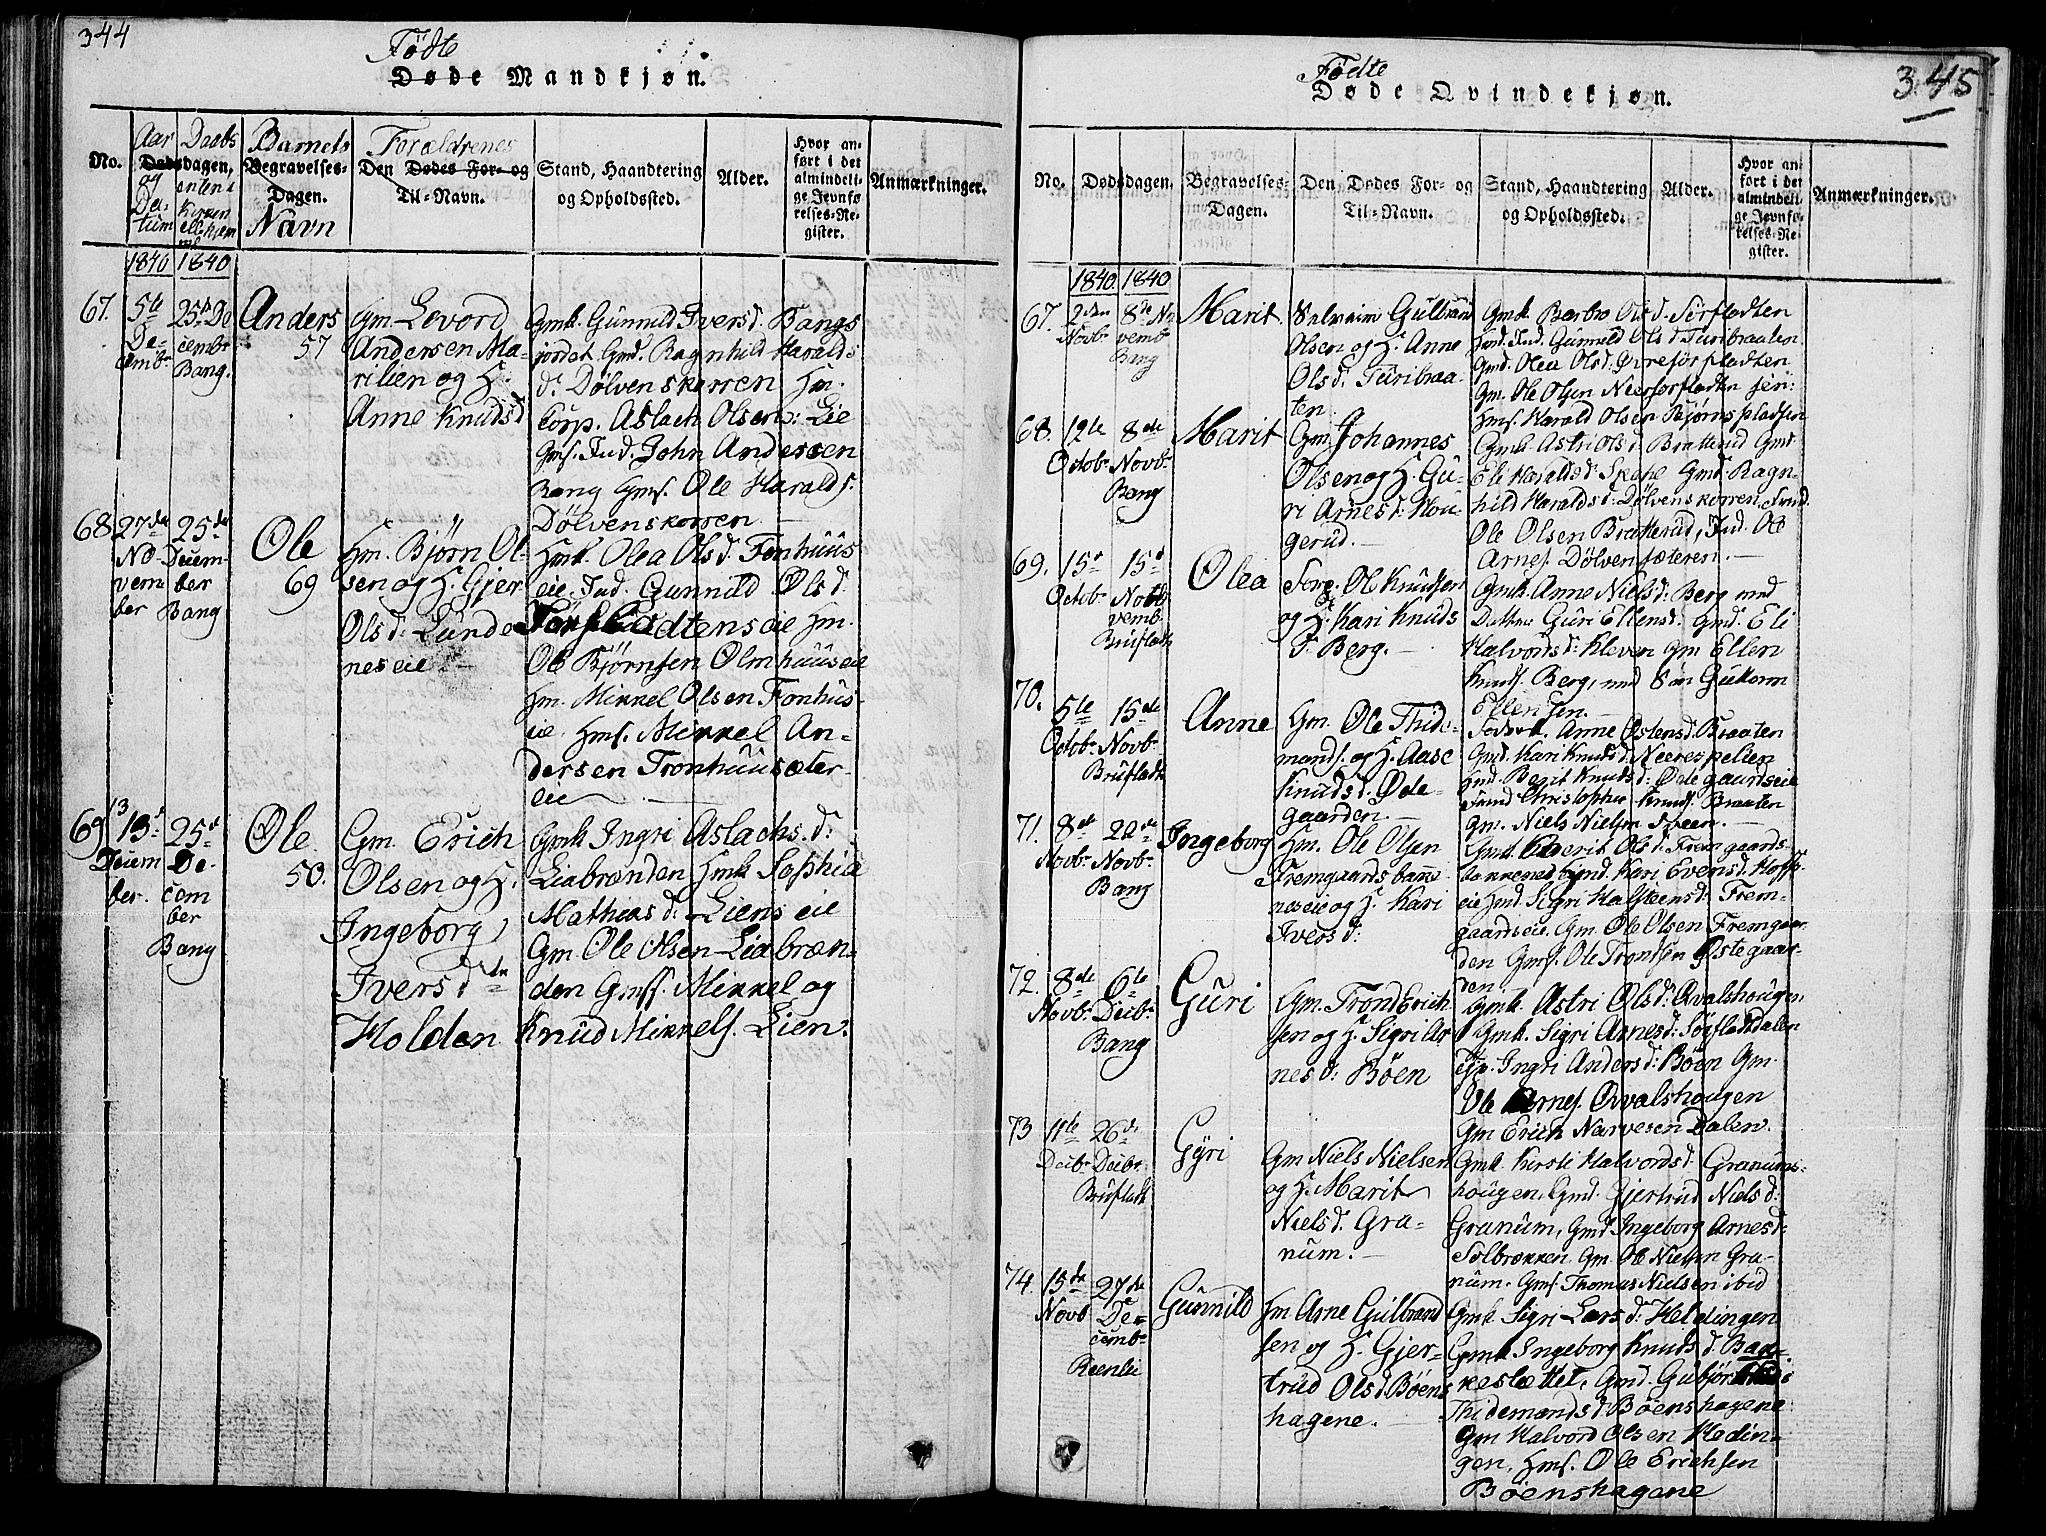 344
Fødte
Døde Mandkjøn.
No.
Aar og Datum
Daabs
Dødsdagen,
Barnets
Begravelses-
Dagen.
Navn
Forældrenes
Den Dødes For- og
Til-Navn.
Stand, Haandtering
og Opholdssted.
Alder.
Hvor an-
ført i det
almindeli-
ge Jevnfø-
relses-Re-
gister.
Anmærkninger.
1840 1840
67.
5te
De-
cembr
25de De
cembr
Bang.
Anders
57
Gm. Levord
Andersen Ma-
rilien og H.
Anne Knudsd
Gmk. Gunnild Iversd. Bangs
jordet Gmd. Ragnhild Harald
d. Dölvenskorren Hm.
Corp. Aslach Olsen: Lie
Gmf. Ind. John Andersen
Bang Gmf. Ole Haralds.
Dölvenskorren
68
27de
No-
vem-
ber
25de
Decem-
ber
Bang
Ole
69
Hm. Bjørn Ol-
sen og H. Gjer
Olsd: Lunde
nes eie
Hmk. Olea Olsd. Fonhuus
eie. Ind. Gunnild Olsd:
Ole Bjørnsen Olmhuuseie
Hm. Mikkel Olsen Fonhus-
eie. Hmf. Mikkel An-
dersen Tronhuusæter-
eie
69
13
13de
Decem
ber.
25de
De-
cem
ber
Bang
Ole
50.
Gm. Erich
Olsen og H.
Ingeborg
Iversdtr
Holden
Gmk Ingri Aslachs. d:
Liabrænden Hmk Sophia
Matheas d: Liens eie
Gm. Ole Olsen Liabræn-
den Gmff. Mikkel og
Knud Mikkels. Lien.
345
Fødte
Døde Qvindekjøn.
No.
Dødsdagen.
Begravelses-
Dagen.
Den Dødes For- og
Til-Navn.
Stand, Haandtering
og Opholdssted.
Alder.
Hvor an-
ført i det
almindeli-
ge Jevnfø-
relses-Re-
gister.
Anmærkninger.
1840 1840
67.
2den
Novbr
8de No
vemb
Bang
Marit.
Gulbrand
Olsen og H. Anne
Olsd: Turibraa-
ten.
Gmk Barbro Olsd: Sørfladten
Hmd. Ind. Gunnild Olsd Turibraaten
Gmd. Olea Olsd:
Gm. Ole Olsen
Hmf. Harald Olsen Bjørnspladsen
68.
12te
Octobr
8de
Novbr
Bang
Marit
Gm. Johannes
Olsen og H. Gu-
ri Arnesd: Hou
gerud.
Gmk Astri Olsd Bratterud Gmd
Eli Haraldsd. Skore Gmd. Ragn-
hild Haraldsd: Dölvenskorren. Frud.
Ole Olsen Bratterud, Ind. Ole
Arnes. Dölvensæteren.
69.
15de
Octobr
15de
Novb
vemb.
Bruflath
Olea
Forp. Ole Knudsen
og H. Kari Knuds
d. Berg.
Gmk. Anne Nielsd: Berg med
Datter Guri Ellensd: Gmd. Eli
Halvordsd: Kleven Gm Ellen
Knuds. Berg, med Søn Guttorm
Ellensen.
70.
5te
Octobr
15de
Novbr
Bruflath
Anne
Gm. Ole Thide-
mands. og H. Aase
Knudsd. Øde-
gaarden.
Anne Ostensd: Braaten
Gmd. Kari Knudsd: Neerespelien
Hmd. Berit Knudsd: Ødegaardseie
Christopher Knuds. Braaten
Gm. Niels Nielsen Sveen.
71.
8de
Novbr
22de
Novbr
Bang
Ingeborg
Hm. Ole Olsen
Fremgaardsbann
neseie og H. Kari
Iversd:
Gmk. Berit Olsd: Fremgaards-
Kari Evensd: Hoffs
eie Hmd. Sigri Halsteensd: Frem-
gaardseie. Gm. Ole Olsen Fremgaar
den Gmf. Ole Trondsen Østegaar-
den
72.
8de
Novbr
6te
Decbr
Bang
Guri
Gm. Trond Erich
sen og H. Sigri Ar
nesd: Böen
Gmk. Astri Olsd: Qvalshougen
Gmk. Sigri Arnesd: Sørfladdalen
Gp. Ingri Andersd: Böen Gm.
Ole Arnes. Qvalshougen
Gm Erich Narvesen Dalen.
73
11te
Decbr
26de
Decbr
Bruflath
Gÿri
Gm Niels Nielsen
og H. Marit
Nielsd. Gra-
num.
Gmk. Kirsti Halvordsd. Granums-
hougen. Gmd. Gjertrud Nielsd:
Granum, Gmd Ingeborg Arnesd:
Solbrækken. Gm. Ole Nielsen Gra-
num. Gmf. Thomas Nielsen ibid
74.
15de
Novb
27de
De-
cemb
Reenlie
Gunnild
Hm Arne Gulbrand
sen og H. Gjer-
trud Olsd Böens
hagene.
Gmk. Sigri Larsd: Heldingen
Gmk Ingeborg Knudsd. Bag-
keslettet, Gmd. Gubjör
Thidemandsd: Böenshagene
Gm Halvord Olsen Hedin-
gen, Hmf. Ole Erichsen
Böenshagene